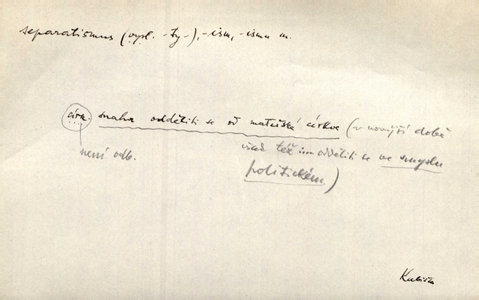 separatismus (vysl. -ty-), -ism, -ismu m.
círk. snaha odděliti se od mateřské církve (v novější době
není odb.
snad též odděliti se ve smyslu
politickém)